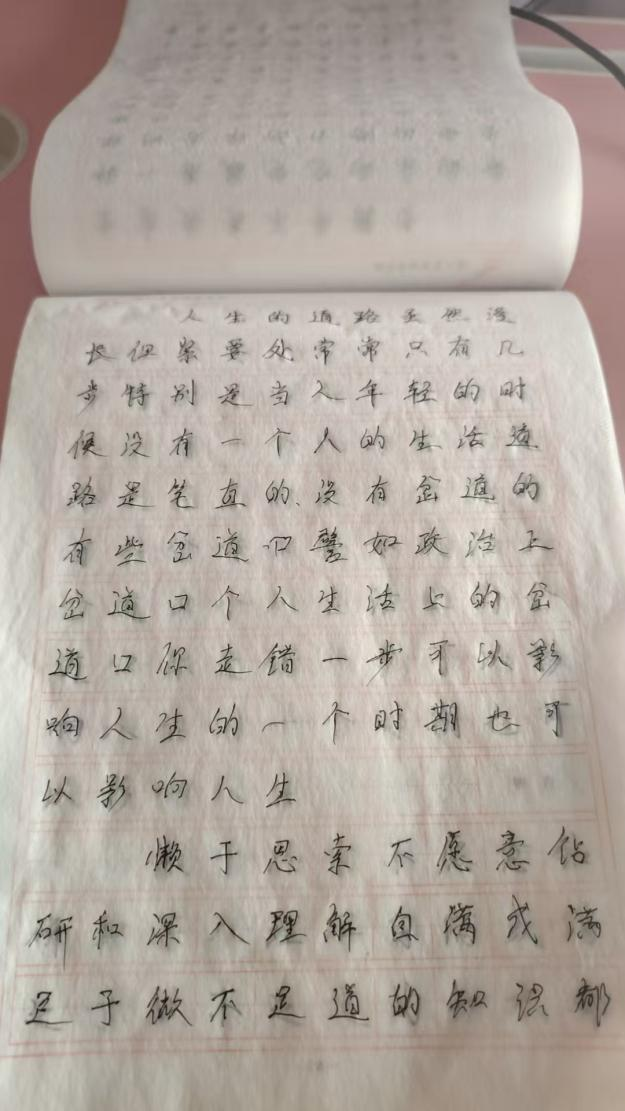 人生的道路虽然漫
长但紧要处常常只有几
步特别是当人年轻的时
侯没有一个人的生活道
路是笔直的、没有岔道的
有些岔道口譬如政治上
岔道口个人生活上的岔
道口你走错一步可以影
响人生的一个时期也可
以影响人生
懒于思索不愿意钻
研和深入理解自满或满
足于微不足道的知识都